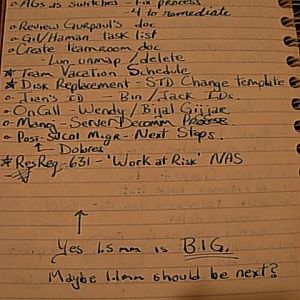 AGs as switches - Fix process
- 4 to remediate
o Review Gurpaul's doc
o Gil/Haman task list
o Create Teamroom doc
- Lun unmap/delete
* Team Vacation Schedule
* Disk Replacement - STD Change template
o Jian's ID - Bin/Jack IDs.
o OnCall - Wendy/Bijal
o Manoj - Server Decomm Process
o Post SVC01 Migr - Next Steps.
↑ Dolores
* ResReq-631 - 'Work at Risk' NAS
↑
Yes 1.5mm is BIG.
Maybe 1.1mm should be next?